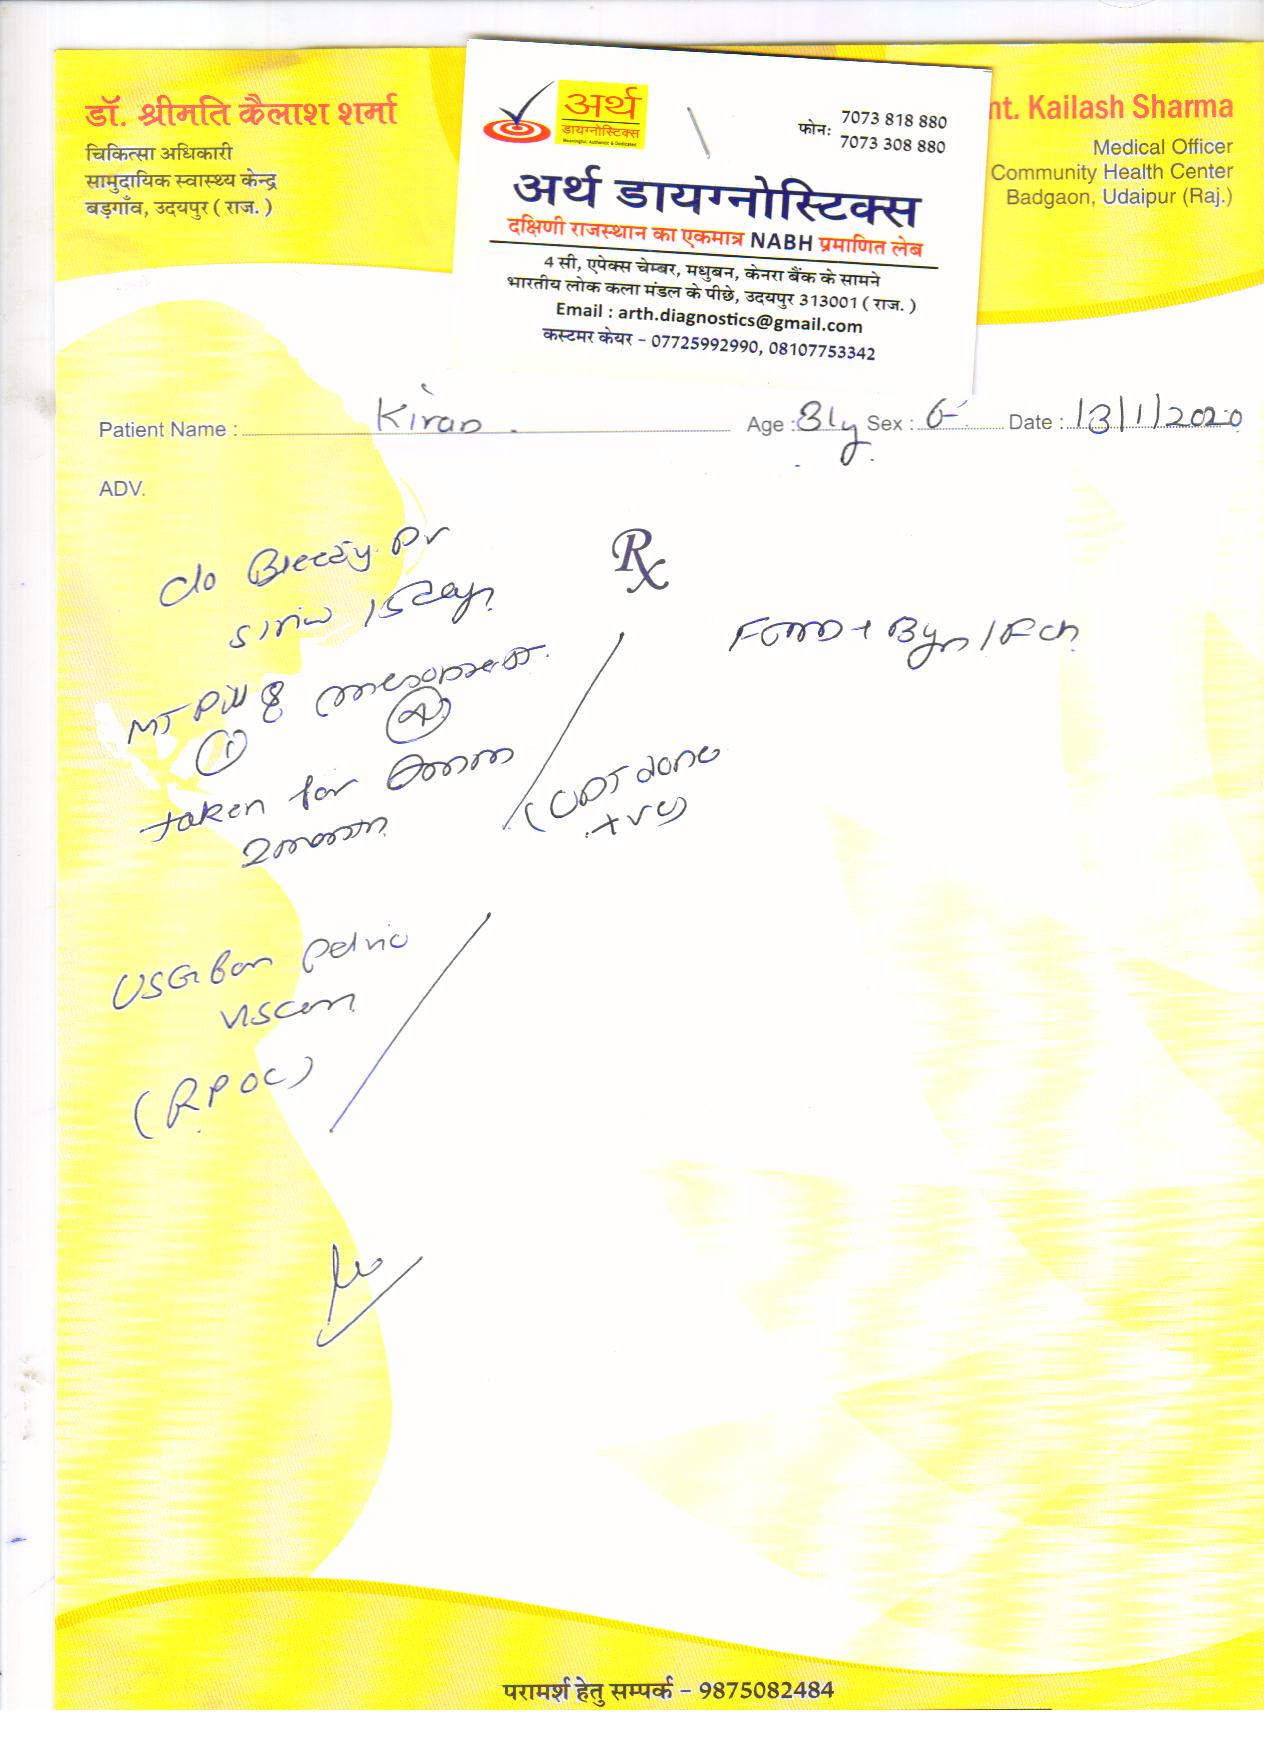 डॉ. श्रीमति कैलाश शर्मा
चिकित्सा अधिकारी
सामुदायिक स्वास्थ्य केन्द्र
बड़गाँव, उदयपुर ( राज. )
अर्थ
डायग्नोस्टिक्स
Meaningful, Authentic & Dedicated
फोन: 7073 818 880
7073 308 880
अर्थ डायग्नोस्टिक्स
दक्षिणी राजस्थान का एकमात्र NABH प्रमाणित लेब
4 सी, एपेक्स चेम्बर, मधुबन, केनरा बैंक के सामने
भारतीय लोक कला मंडल के पीछे, उदयपुर 313001 ( राज. )
Email : arth.diagnostics@gmail.com
कस्टमर केयर – 07725992990, 08107753342
nt. Kailash Sharma
Medical Officer
Community Health Center
Badgaon, Udaipur (Raj.)
Patient Name : Kiran Age : 31y Sex : Date : 13/1/2020
ADV.
Rx
c/o Bleeding Pv
15 days
MT Pill
1
taken for
2 month
(UPT done
+ve)
USG for pelvic
(RPOC)
परामर्श हेतु सम्पर्क – 9875082484